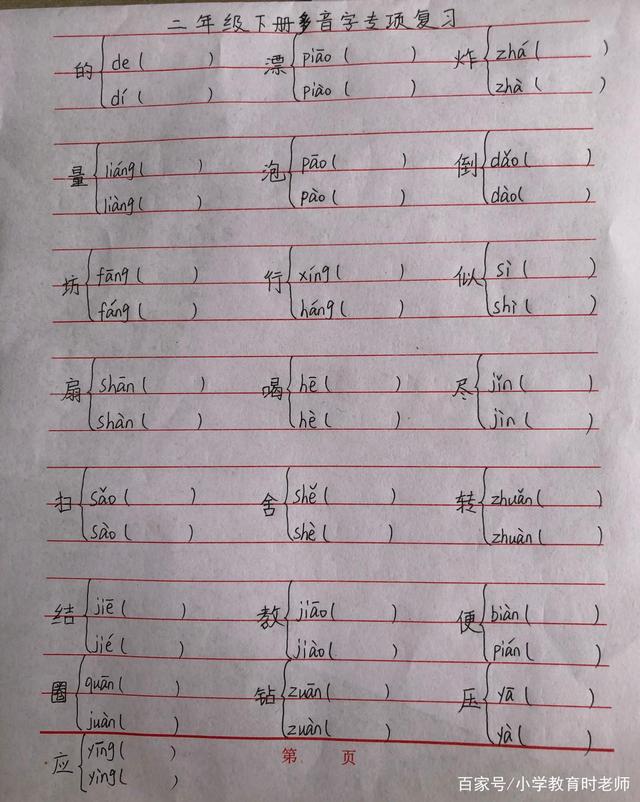 二年级下册多音字专项复习
的 de ( ) 漂 piāo ( ) 炸 zhá ( )
dí ( ) piào ( ) zhà ( )
量 liáng ( ) 泡 pāo ( ) 倒 dǎo ( )
liàng ( ) pào ( ) dào ( )
坊 fāng ( ) 行 xíng ( ) 似 sì ( )
fáng ( ) háng ( ) shì ( )
扇 shān ( ) 喝 hē ( ) 尽 jǐn ( )
shàn ( ) hè ( ) jìn ( )
扫 sǎo ( ) 舍 shě ( ) 转 zhuǎn ( )
sào ( ) shè ( ) zhuàn ( )
结 jiē ( ) 教 jiāo ( ) 便 biàn ( )
jié ( ) jiào ( ) pián ( )
圈 quān ( ) 钻 zuān ( ) 压 yā ( )
juàn ( ) zuàn ( ) yà ( )
应 yīng ( )
yìng ( )
第 页
百家号/小学教育时老师